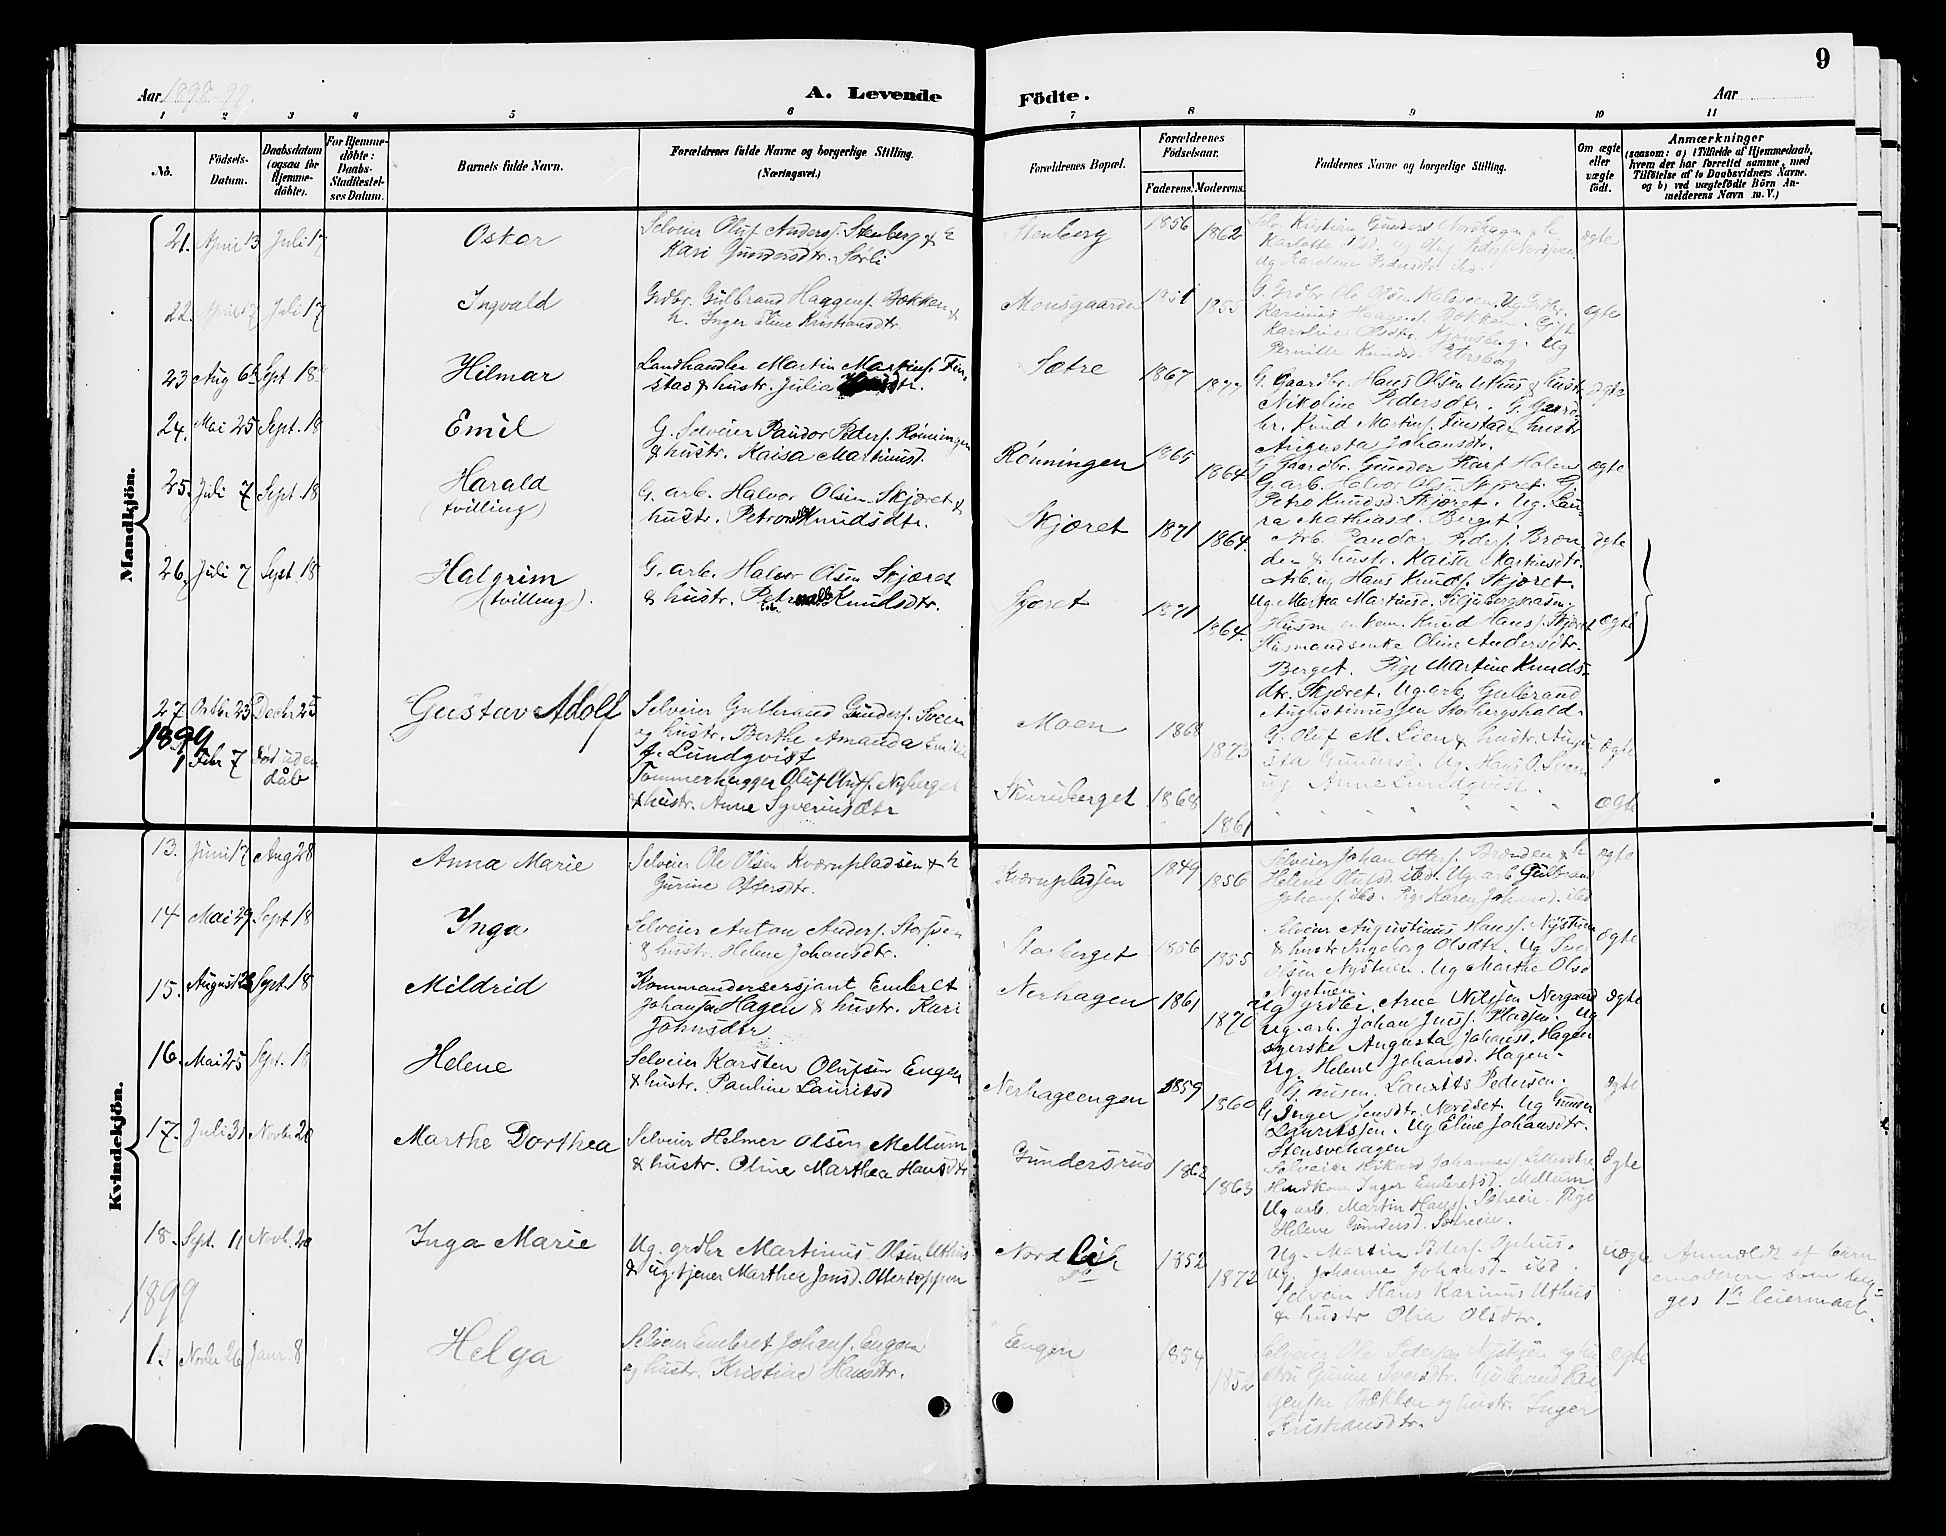 9
Aar 1898-99.
A. Levende
Födte.
Aar
1 2 3 4 5 6 7 8 9 10 11
No.
Födsels-Datum.
Daabsdatum (ogsaa for Hjemme-döbte).
For Hjemme-döbte: Daabs-Stadfæstel-ses Datum.
Barnets fulde Navn.
Forældrenes fulde Navne og borgerlige Stilling.
(Næringsvei.)
Forældrenes Bopæl.
Forældrenes Födselsaar.
Faderens. Moderens.
Faddernes Navne og borgerlige Stilling.
Om ægte eller uægte födt.
Anmærkninger
(saasom: a) i Tilfælde af Hjemmedaab, hvem der har forrettet samme, med Tilföielse af to Daabsvidners Navne. og b) ved uægtefödte Börn An-melderens Navn m. V.)
Mandkjön.
21. April 13 Juli 17 Oskar
Selveier Oluf Anders. Stenberg & h
Kari Gundersdtr. Sörli
Stenberg 1856 1862 ægte
22. April 17 Juli 17 Ingvald
Grdbr. Gulbrand Haagens. Bækken &
h. Inger Eline Kristiansdtr.
Monsgaarden 1851 1855
G. Grdbr. Ole Olsn
Karoline Olsdtr.
Pernille Knudsd. Petersborg
ægte
23 Aug 6 Sept 18 Hilmar
Landhandler Martin Martins. Fin-
stad & hustr. Julia
Sætre 1867 1877
G. Gaardbr. Hans Olsen Uthus & hustr
Nikoline Pedersdtr. G. Gaard
br. Knud Martins. Finstad & hustr
Augusta Johansdtr.
ægte
24. Mai 25 Sept. 18 Emil
G. Selveier Pandor Peders. Rönningen
& hustr. Kaisa Martinusd.
Rönningen 1865 1864
G. Gaardbr. Gunder
G. arb. Halvor Olsn Skjæret. G.
Petro Knudsd. Skjæret. Ug. Lau-
ra Mathiasd. Berget.
ægte
25. Juli 7 Sept. 18 Harald
(tvilling)
G. arb. Halvor Olsen Skjæret &
hustr. Petronille Knudsdtr.
Skjæret 1871 1864.
Arb. Pandor Peders. Bræn
den & hustr. Kaisa Martinsdtr.
Arb. ug Hans Knuds. Skjæret.
Ug. Martea Martinsd.
ægte
26. Juli 7 Sept. 18 Halgrim
(tvilling).
G. arb. Halvor Olsen Skjæret
& hustr. Petronille Knudsdtr.
Skjæret 1871 1864.
Husm. Knud Hans. Skjæret
Husmandsenke Oline Andersdtr.
Berget. Pige Martine Knuds-
dtr. Skjæret. Ug. arb. Gulbrand
Augustinussen
ægte
27 Octbr 23 Decbr 25 Gustav Adolf
Selveier Gulbrand Gunders. Sveen
og hustr. Berthe Amanda Emilie
f. Lundqvist
Moen 1868 1873
G. Oluf M. Lien & hustr. Augu
sta Gundersd. Ug. Hans O. Sveen
ug Anne Lundqvist.
ægte
1899
1 Febr 7 Död uden
dåb
Tömmerhugger Oluf Olufs. Nyberget
& hustr. Anne Syverinsdtr
Skuruberget 1868 1861 ægte
Kvindekjön.
13. Juni 17 Aug 28 Anna Marie
Selveier Ole Olsen Kværnpladsen & h
Gurine Oftersdtr.
Kværnpladsen 1849 1856
Selveier Johan Otters. Brænden & h
Helene Olufsd. ibd. Ug. arb. Gulbrand
Johans. ibd. Pige Karen Johansd. ibd
ægte
14 Mai 29 Sept 18 Inga
Selveier Anton Anders. Storsveen
& hustr. Helene Johansdtr.
Storberget 1856 1855
Selveier Augustinus Hans. Nystuen
& hustr Ingeborg Olsdtr. Ug Iver
Olsen Nystuen. Ug Marthe Olsd
Nystuen.
ægte
15. August 28 Sept. 18 Mildrid
Kommandersersjant Embret
Johansen Hagen & hustr. Kari
Johnsdtr
Nerhagen 1861 1870
Ug grdbr. Arne Nilssen Nergaard
Ug. arb. Johan Jens. Pladsen. Ug
syerske Augusta Johansd. Hagen
Ug. Helene Johansd. Hagen.
ægte
16. Mai 25 Sept. 18 Helene
Selveier Karsten Olufsen Engen
& hustr. Pauline Lauritsd
Nerhageengen 1859 1860
Laurits Pedersen.
G. Inger Jensdtr. Nordset. Ug Gunder
Lauritssen. Ug Eline Johansdtr.
Stensvehagen
ægte
17. Juli 31 Novbr 20 Marthe Dorthea
Selveier Helmer Olsen Mellum
& hustr. Oline Marthea Hansdtr
Gundersrud 1862 1863
Selveier Rikard Johannes.
Inger Embretsd. Mellum
Ug arb. Martin Hans. Sætreeie. Pige
Helene Gundersd. Sætreeie.
ægte
18. Sept. 11 Novb. 20 Inga Marie
Ug. grdbr Martinus Olsen Uthus
& ug. tjener Marthea Jensd. Ottertoppen
Nordli 1852 1872
Ug. Martin Peders. Ophus.
Ug. Johanne Johansd. ibd.
Selveier Hans Karinus Uthus
& hustr Olia Olsdtr.
uægte
Anmeldt af barn
emoderen som beg=
ges 1ste leiermaal.
1899
1. Novbr 26 Janr. 8 Helga
Selveier Embret Johans. Engen
og hustr. Kristine Hansdtr.
Engen 1854 1852
Selveier Ole Petersen Nystuen og hu
stru Gurine Iversdtr. Gulbrand Haa
gensen Bækken og hustr. Inger
Kristiansdtr.
ægte